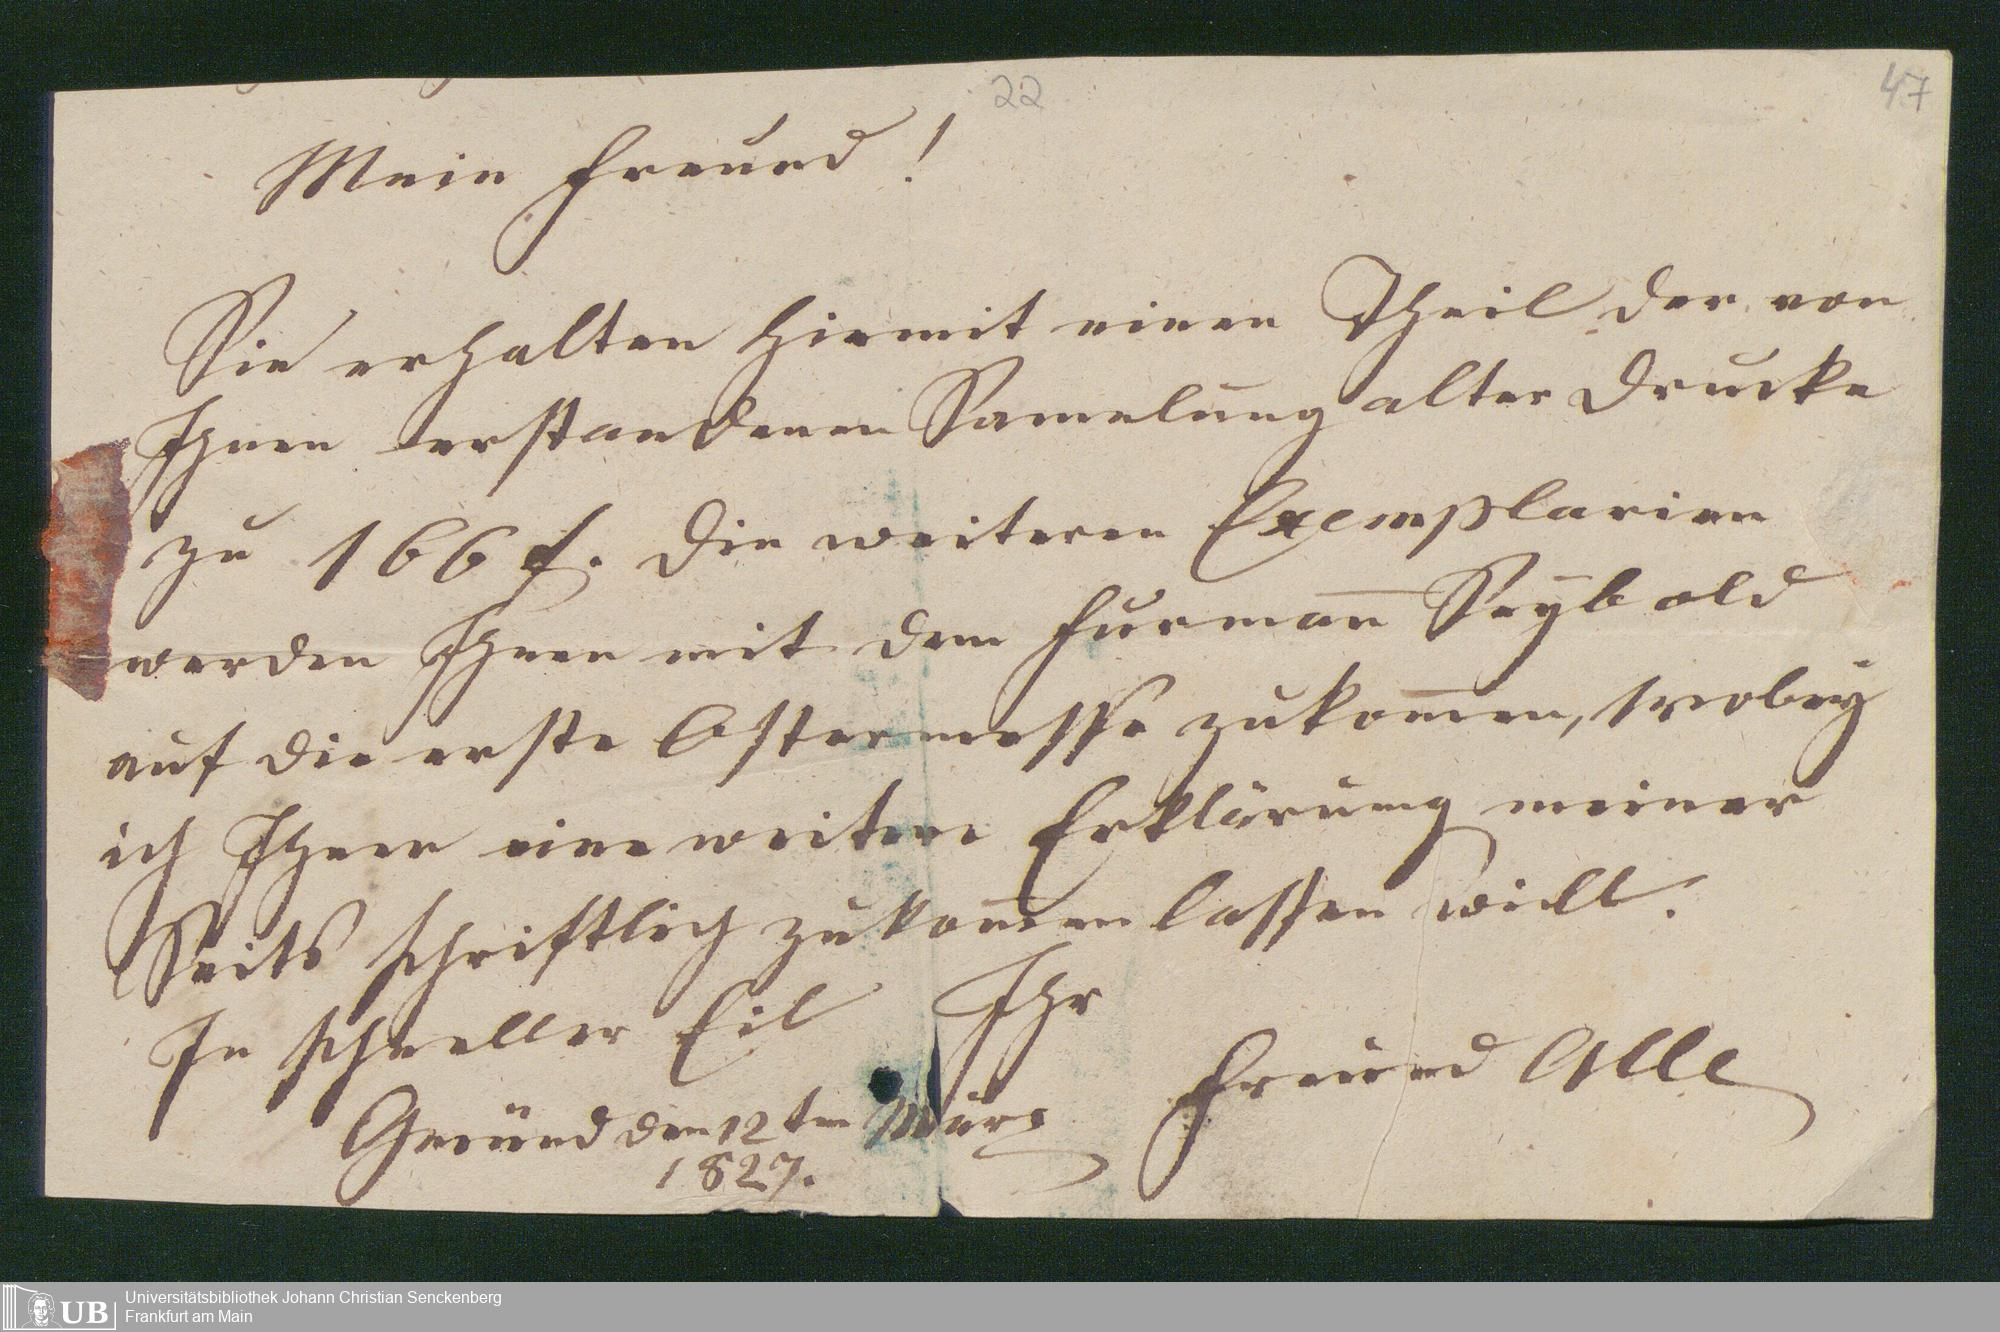 22
47
Mein Freund!
Sie erhalten hiermit einen Theil der von
Ihnen erstandenen Samelung alter Drucke
zu 166 f. Die weiteren Exemplarien
werden Ihnen mit dem Furman̄ Seybold
auf die erste Ostermesse zukom̄en, wobey
ich Ihnen eine weitere Erklärung meiner
Seits schriftlich zukom̄en lassen will.
In schneller Eil Ihr
Freund Alle
Gmünd den 12ten März
1827.
UB Universitätsbibliothek Johann Christian Senckenberg
Frankfurt am Main